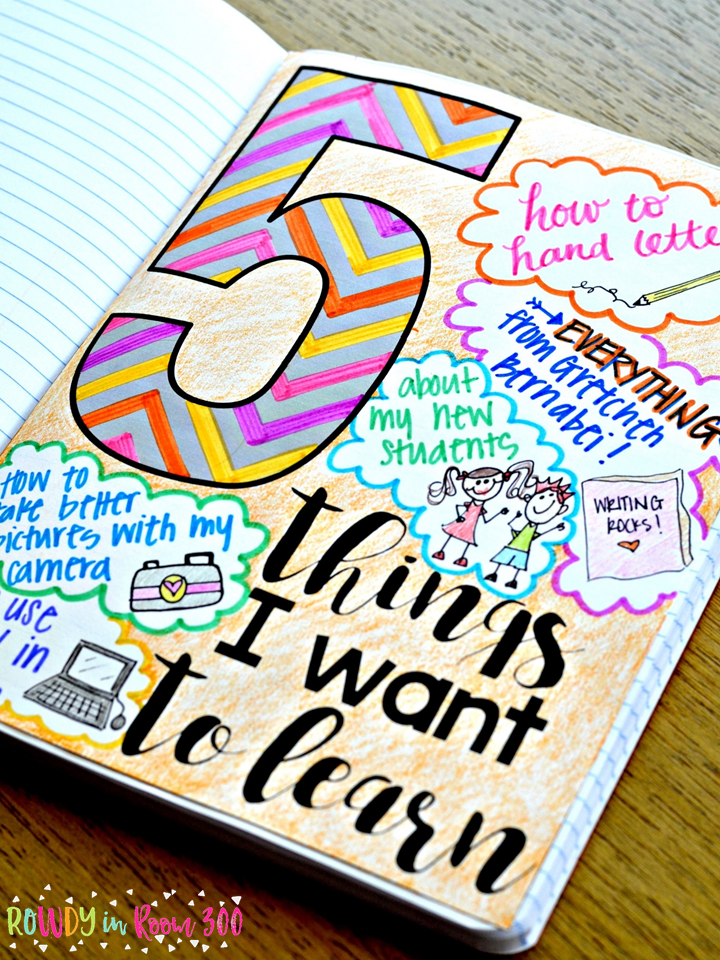 5
how to
hand lette
EVERYTHING
from Gretchen
Bernabei!
about
my new
students
WRITING
ROCKS!
How to
take better
pictures with my
camera
use
in
things
I want
to learn
ROWDY in Room 300